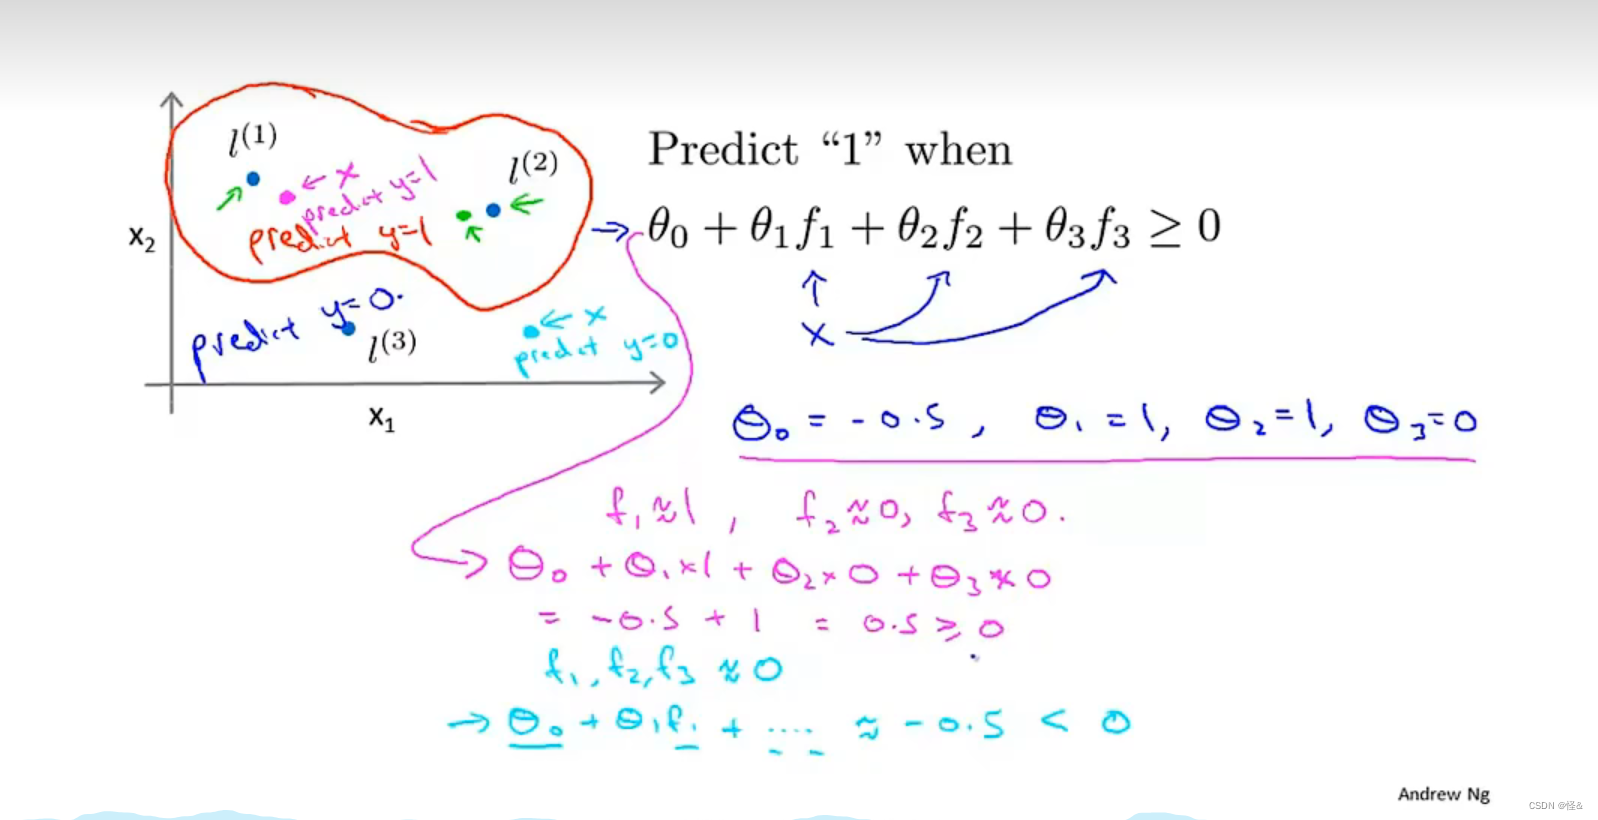 l⁽¹⁾
← x
predict y=1
l⁽²⁾
predict y=1
x₂
predict y=0.
l⁽³⁾
← x
predict y=0
x₁
Predict “1” when
θ₀ + θ₁f₁ + θ₂f₂ + θ₃f₃ ≥ 0
x
θ₀ = -0.5, θ₁=1, θ₂=1, θ₃=0
f₁≈1, f₂≈0, f₃≈0.
→ θ₀ + θ₁×1 + θ₂×0 + θ₃×0
= -0.5 + 1 = 0.5 ≥ 0
f₁, f₂, f₃ ≈ 0
→ θ₀ + θ₁f₁ + .... ≈ -0.5 < 0
Andrew Ng
CSDN @怪&